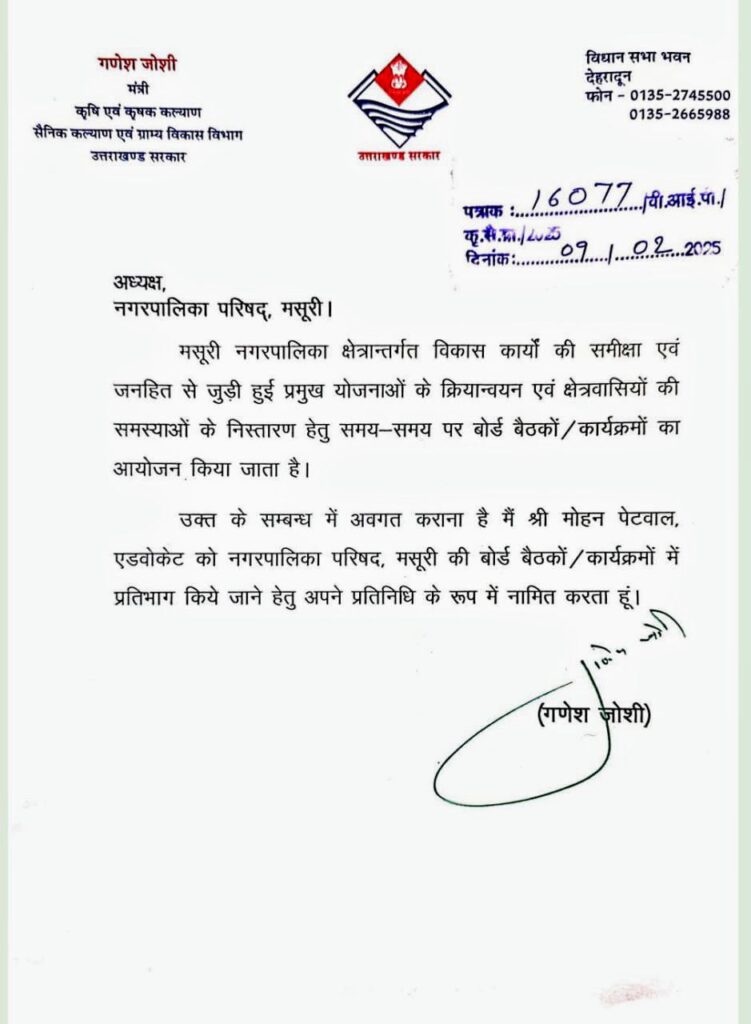 गणेश जोशी
मंत्री
कृषि एवं कृषक कल्याण
सैनिक कल्याण एवं ग्राम्य विकास विभाग
उत्तराखण्ड सरकार
उत्तराखण्ड सरकार
विधान सभा भवन
देहरादून
फोन - 0135-2745500
0135-2665988
पत्रांक :.....16077...../वी.आई.पी./
कृ.सै.ग्रा./2025
दिनांक:.....09...../.....02.....2025
अध्यक्ष,
नगरपालिका परिषद्, मसूरी।
मसूरी नगरपालिका क्षेत्रान्तर्गत विकास कार्यों की समीक्षा एवं
जनहित से जुड़ी हुई प्रमुख योजनाओं के क्रियान्वयन एवं क्षेत्रवासियों की
समस्याओं के निस्तारण हेतु समय–समय पर बोर्ड बैठकों/कार्यक्रमों का
आयोजन किया जाता है।
उक्त के सम्बन्ध में अवगत कराना है मैं श्री मोहन पेटवाल,
एडवोकेट को नगरपालिका परिषद, मसूरी की बोर्ड बैठकों/कार्यक्रमों में
प्रतिभाग किये जाने हेतु अपने प्रतिनिधि के रूप में नामित करता हूं।
(गणेश जोशी)